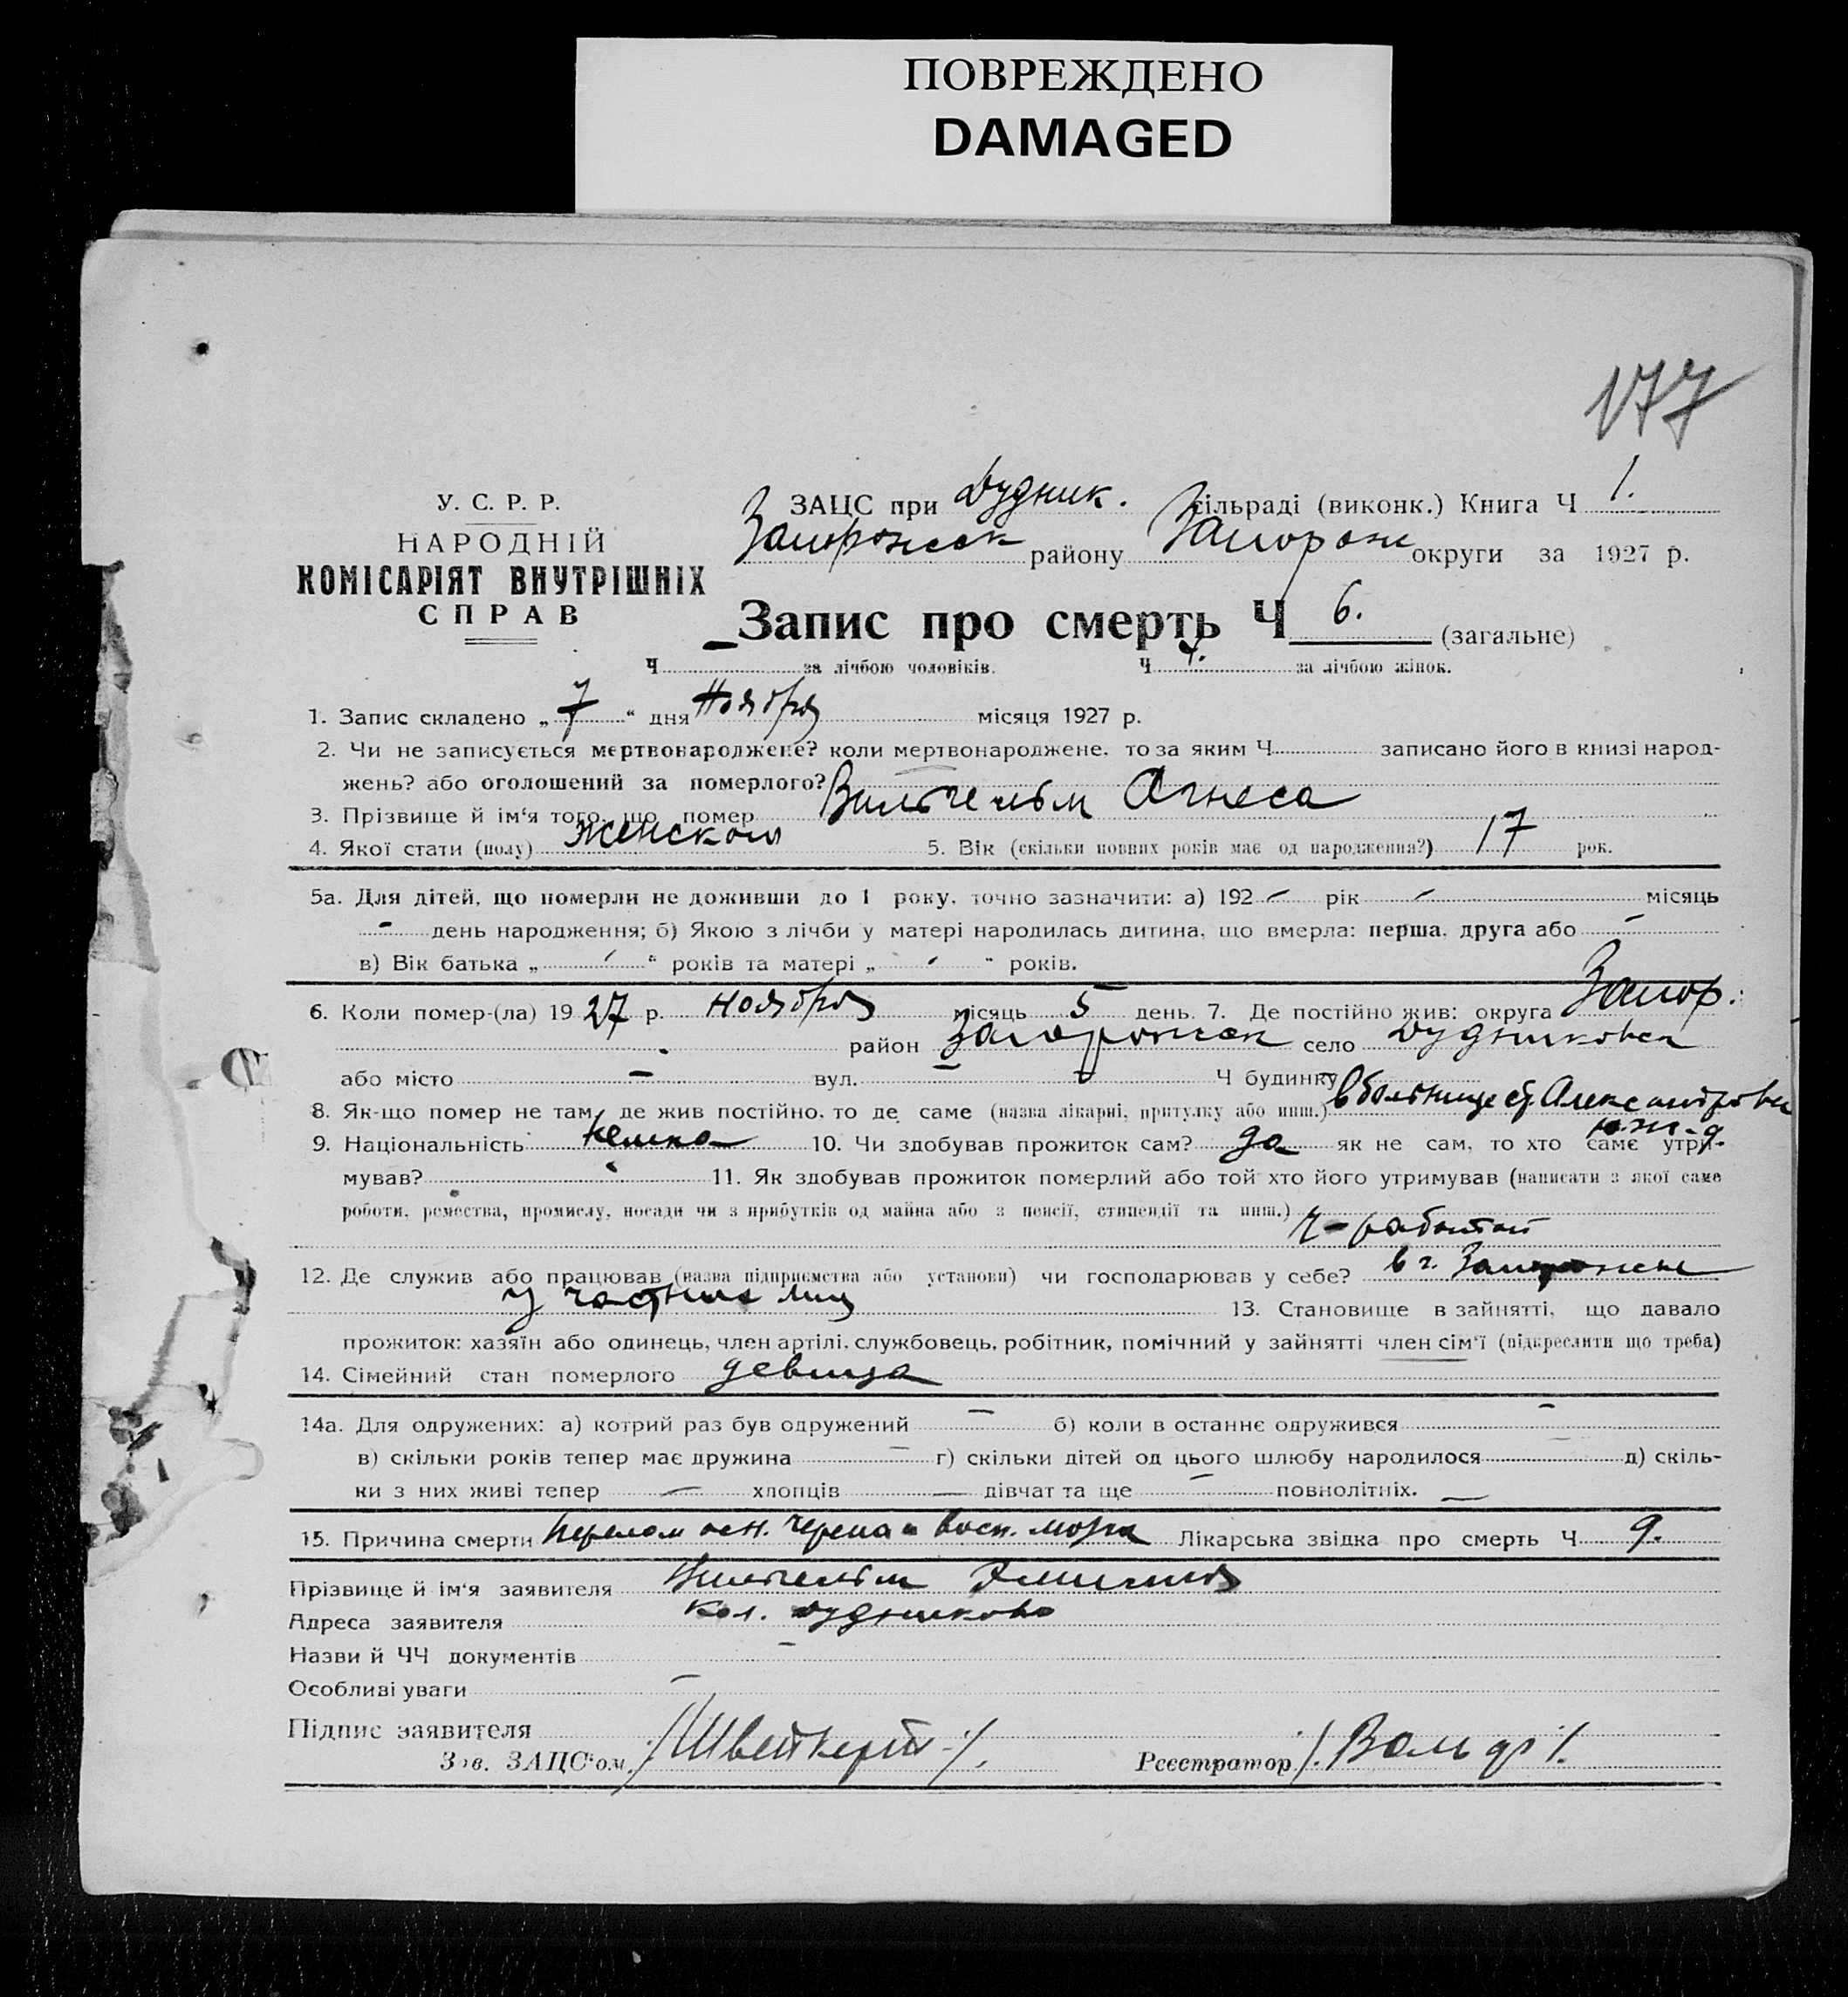 ПОВРЕЖДЕНО
DAMAGED
177
У. С. Р. Р.
НАРОДНІЙ
КОМІСАРІЯТ ВНУТРІШНІХ
СПРАВ
ЗАЦС при Дудник. сільраді (виконк.) Книга Ч 1.
Запорожск району Запорож округи за 1927 р.
Запис про смерть Ч 6. (загальне)
Ч за лічбою чоловіків. Ч 4. за лічбою жінок.
1. Запис складено „ 7 “ дня Ноября місяця 1927 р.
2. Чи не записується мертвонароджене? коли мертвонароджене, то за яким Ч записано його в книзі народ-
жень? або оголошений за померлого?
3. Прізвище й ім‘я того, що помер Вильгельм Агнеса
4. Якої стати (полу) женского 5. Вік (скільки повних років має од народження?) 17 рок.
5а. Для дітей, що померли не доживши до 1 року, точно зазначити: а) 192 – рік – місяць
– день народження; б) Якою з лічби у матері народилась дитина, що вмерла: перша, друга або –
в) Вік батька „ “ років та матері „ “ років.
6. Коли помер-(ла) 19 27 р. ноября місяць 5 день. 7. Де постійно жив: округа Запор.
район Запорожск село Дудниковск
або місто – вул. – Ч будинку –
8. Як-що помер не там, де жив постійно, то де саме (назва лікарні, притулку або инш.) в больнице ст Александровск
ю.ж.д.
9. Національність немка 10. Чи здобував прожиток сам? да як не сам, то хто саме утри-
мував? 11. Як здобував прожиток померлий або той хто його утримував (написати з якої саме
роботи, ремества, промислу, посади чи з прибутків од майна або з пенсії, стипендії та инш.)
работой
12. Де служив або працював (назва підприємства або установи) чи господарював у себе? в г. Запорожье
у частных лиц 13. Становище в зайнятті, що давало
прожиток: хазяїн або одинець, член артілі, службовець, робітник, помічний у зайнятті член сім‘ї (підкреслити що треба)
14. Сімейний стан померлого девица
14а. Для одружених: а) котрий раз був одружений – б) коли в останнє одружився –
в) скільки років тепер має дружина – г) скільки дітей од цього шлюбу народилося – д) скіль-
ки з них живі тепер – хлопців – дівчат та ще – повнолітніх. –
15. Причина смерти Перелом осн. черепа и восп. мозга Лікарська звідка про смерть Ч 9.
Прізвище й ім‘я заявителя Вильгельм
Адреса заявителя Кол. Дудниково
Назви й ЧЧ документів –
Особливі уваги –
Підпис заявителя
Зав. ЗАЦС‘ом /Швейкерт/. Реєстратор /. Вольф /.